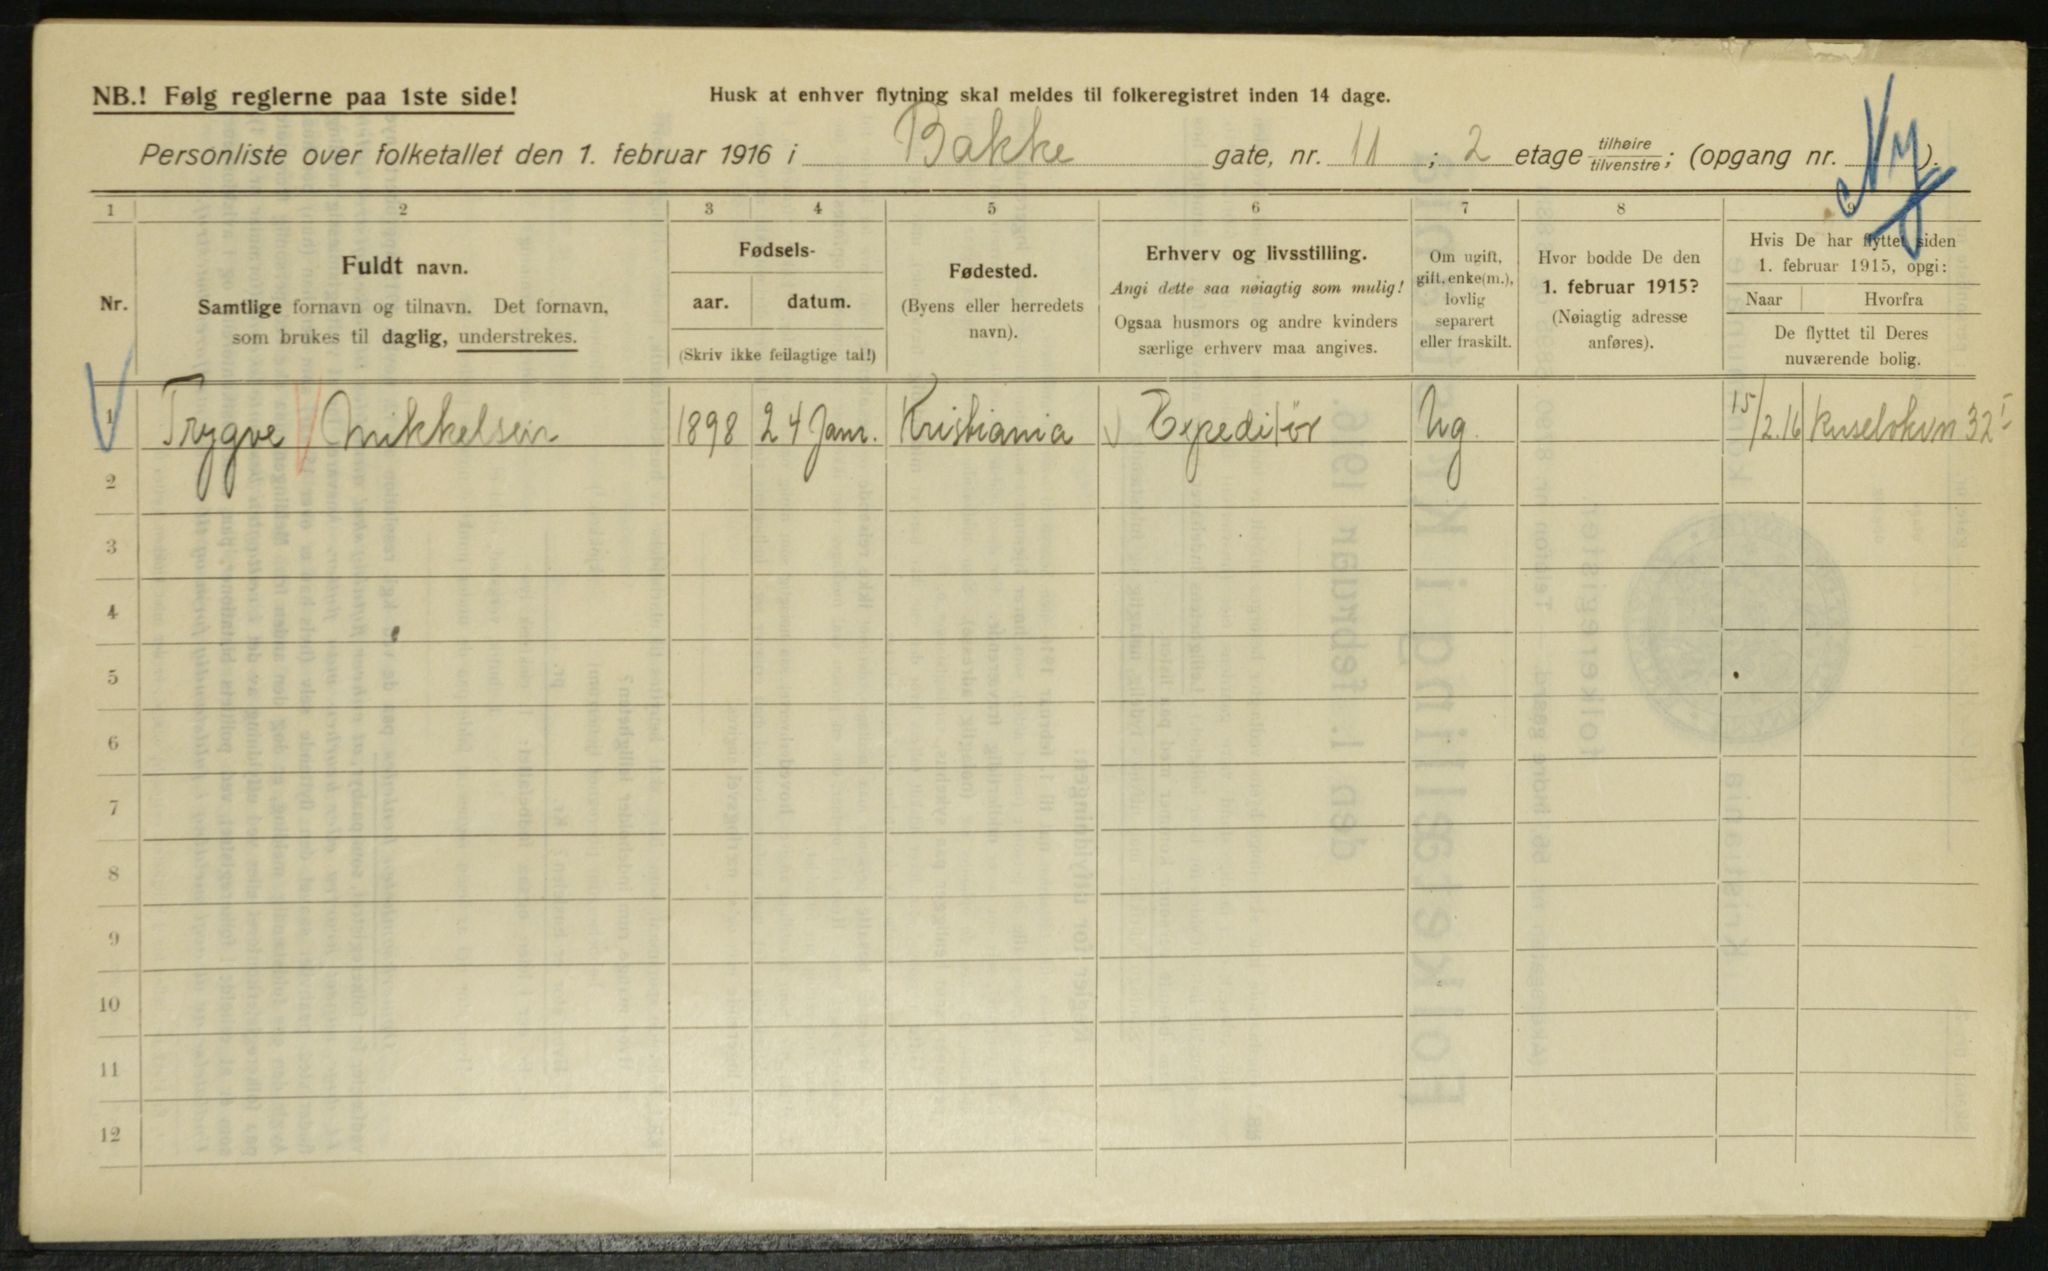 NB.! Følg reglerne paa 1ste side!
Husk at enhver flytning skal meldes til folkeregistret inden 14 dage.
Ny
Personliste over folketallet den 1. februar 1916 i Bakke gate, nr. 11 ; 2 etage tilhøire tilvenstre; (opgang nr. ).
1 2 3 4 5 6 7 8 9
Nr.
Fuldt navn.
Samtlige fornavn og tilnavn. Det fornavn,
som brukes til daglig, understrekes.
Fødsels-
aar. datum.
(Skriv ikke feilagtige tal!)
Fødested.
(Byens eller herredets
navn).
Erhverv og livsstilling.
Angi dette saa nøiagtig som mulig!
Ogsaa husmors og andre kvinders
særlige erhverv maa angives.
Om ugift,
gift, enke(m.),
lovlig
separert
eller fraskilt.
Hvor bodde De den
1. februar 1915?
(Nøiagtig adresse
anføres).
Hvis De har flyttet siden
1. februar 1915, opgi:
Naar Hvorfra
De flyttet til Deres
nuværende bolig.
1 Trygve Mikkelsen 1898 24 Janr. Kristiania Expeditør Ug. 15/2.16 32 I
2
3
4
5
6
7
8
9
10
11
12